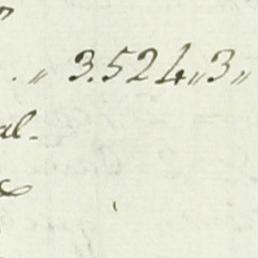 . „ 3.524„3„
al.